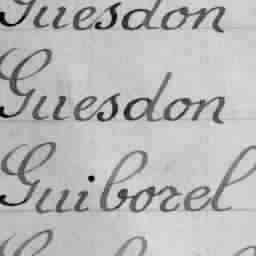 Guesdon
Guesdon
Guiborel